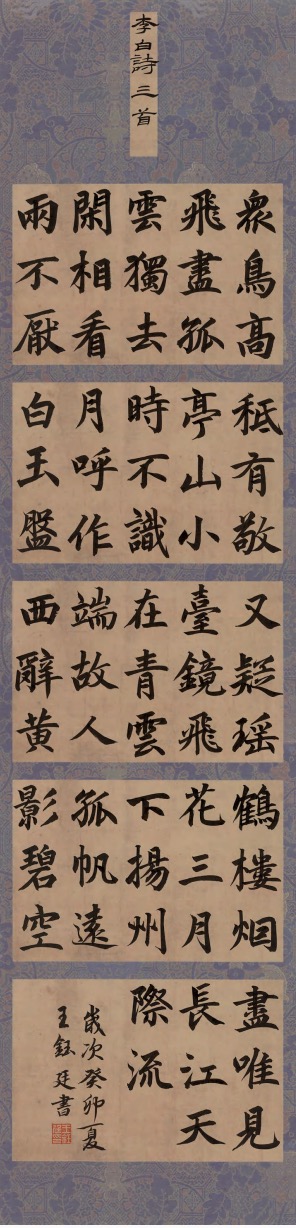 李白詩三首
衆鳥高
飛盡孤
雲獨去
閑相看
兩不厭
秪有敬
亭山小
時不識
月呼作
白玉盤
又疑瑶
臺鏡飛
在青雲
端故人
西辭黄
鶴樓烟
花三月
下揚州
孤帆遠
影碧空
盡唯見
長江天
際流
歲次癸卯夏
王鈺廷書